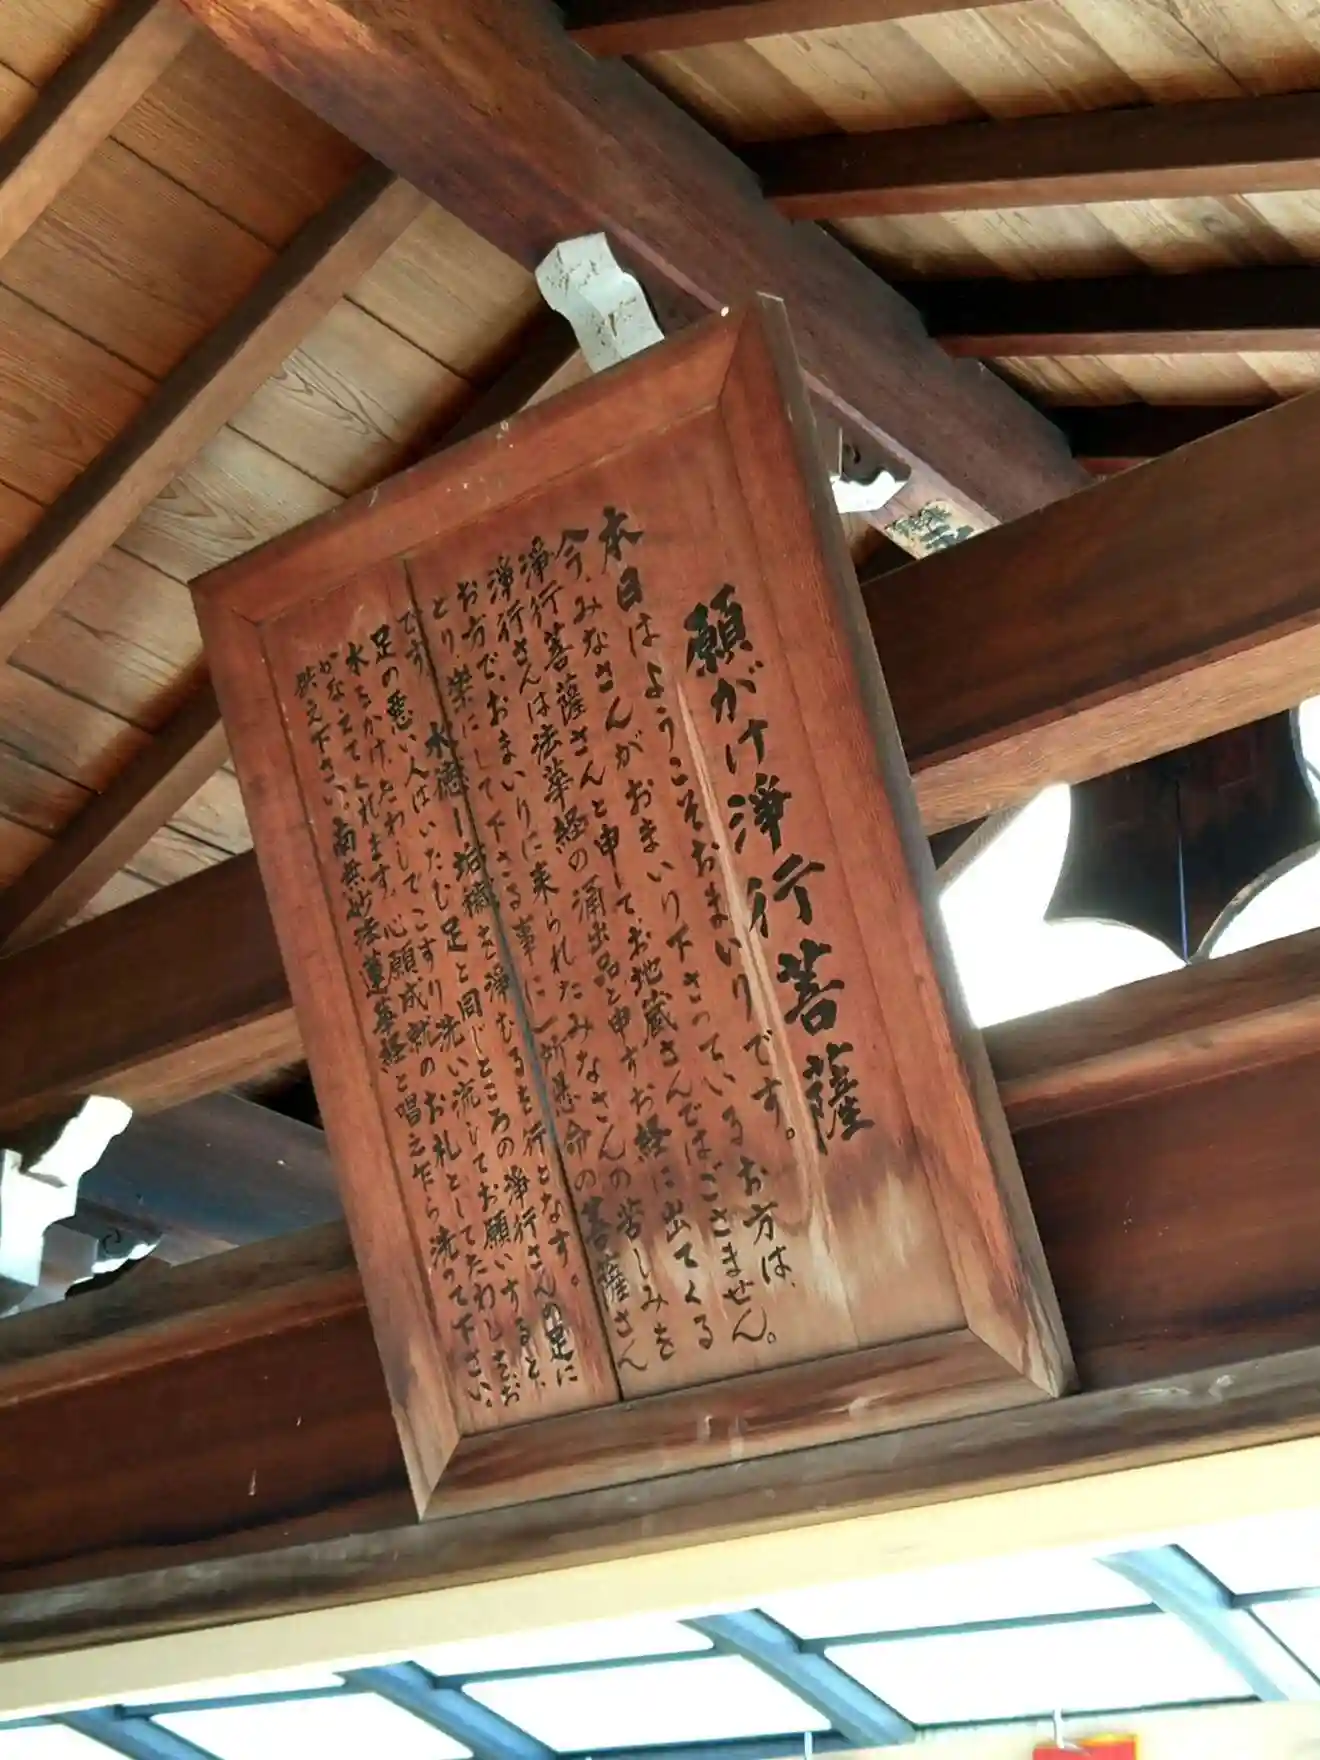 願がけ浄行菩薩
本日はようこそおまいりです。
今、みなさんがおまいり下さっているお方は、
浄行菩薩さんと申して、お地蔵さんではございません。
浄行さんは法華経の涌出品と申すお経に出てくる
お方で、おまいりに来られたみなさんの苦しみを
とり楽にして下さる事に一所懸命の菩薩さん
です。
水徳ー垢穢を浄むるを行となす。
足の悪い人はいたむ足と同じところの浄行さんの足に
水をかけ、たわしでこすり洗い流してお願いすると、
かなえてくれます。心願成就のお札としてたわしをお
供え下さい。南無妙法蓮華経と唱え乍ら洗って下さい。